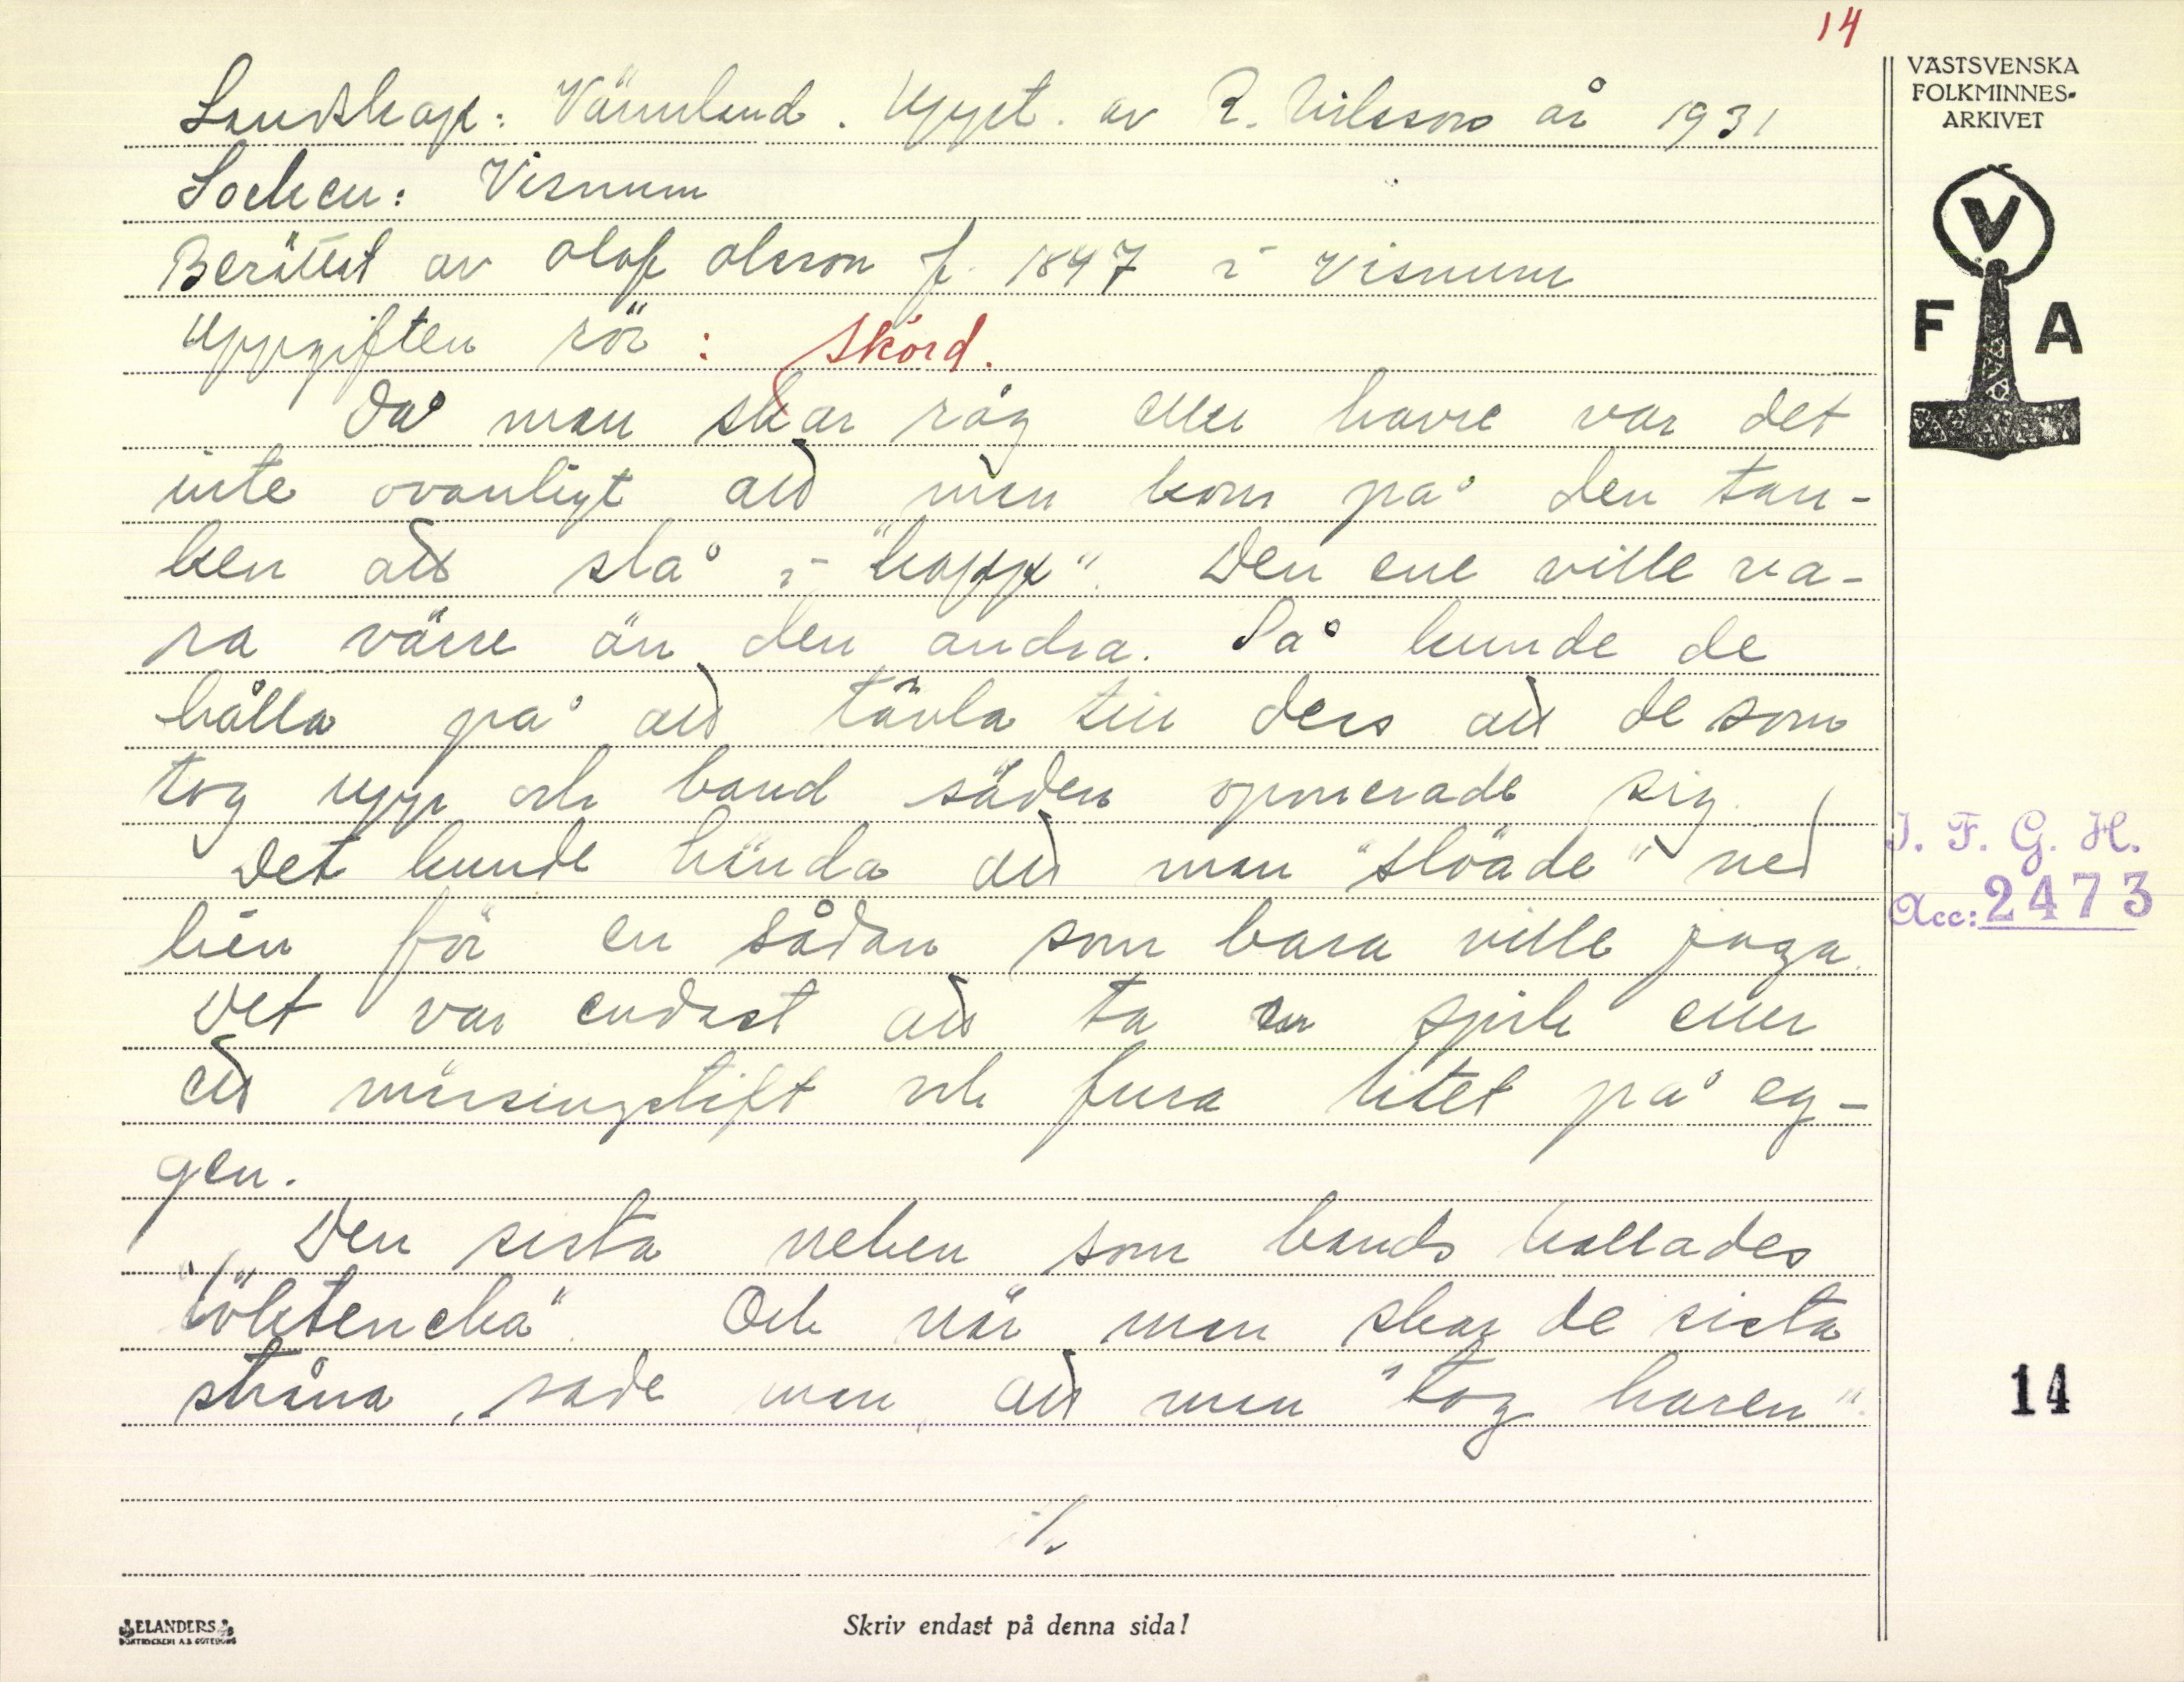 14
VÄSTSVENSKA
FOLKMINNES-
ARKIVET
V
F A
Landskap: Värmland. Uppt. av R. Nilsson år 1931
Socken: Visnum
Berättat av Olof Olsson f. 1847 i Visnum
Uppgiften rör: Skörd.
Då man skar råg eller havre var det
inte ovanligt att man kom på den tan-
ken att slå i "kapp". Den ene ville va-
ra värre än den andra. Så kunde de
hålla på att tävla till dess att de som
tog upp och band säden opinerade sig.
Det kunde hända att man "slöade" ned
lien för en sådan som bara ville jaga.
Det var endast att ta en spik eller
ett mässingstift och fura litet på eg-
gen.
Den sista neken som bands kallades
"löktencka". Och när man skar de sista
stråna, sade man, att man "tog haren".
I. F. G. H.
Acc: 2473
14
ELANDERS
BOKTRYCKERI A.B. GÖTEBORG
Skriv endast på denna sida!